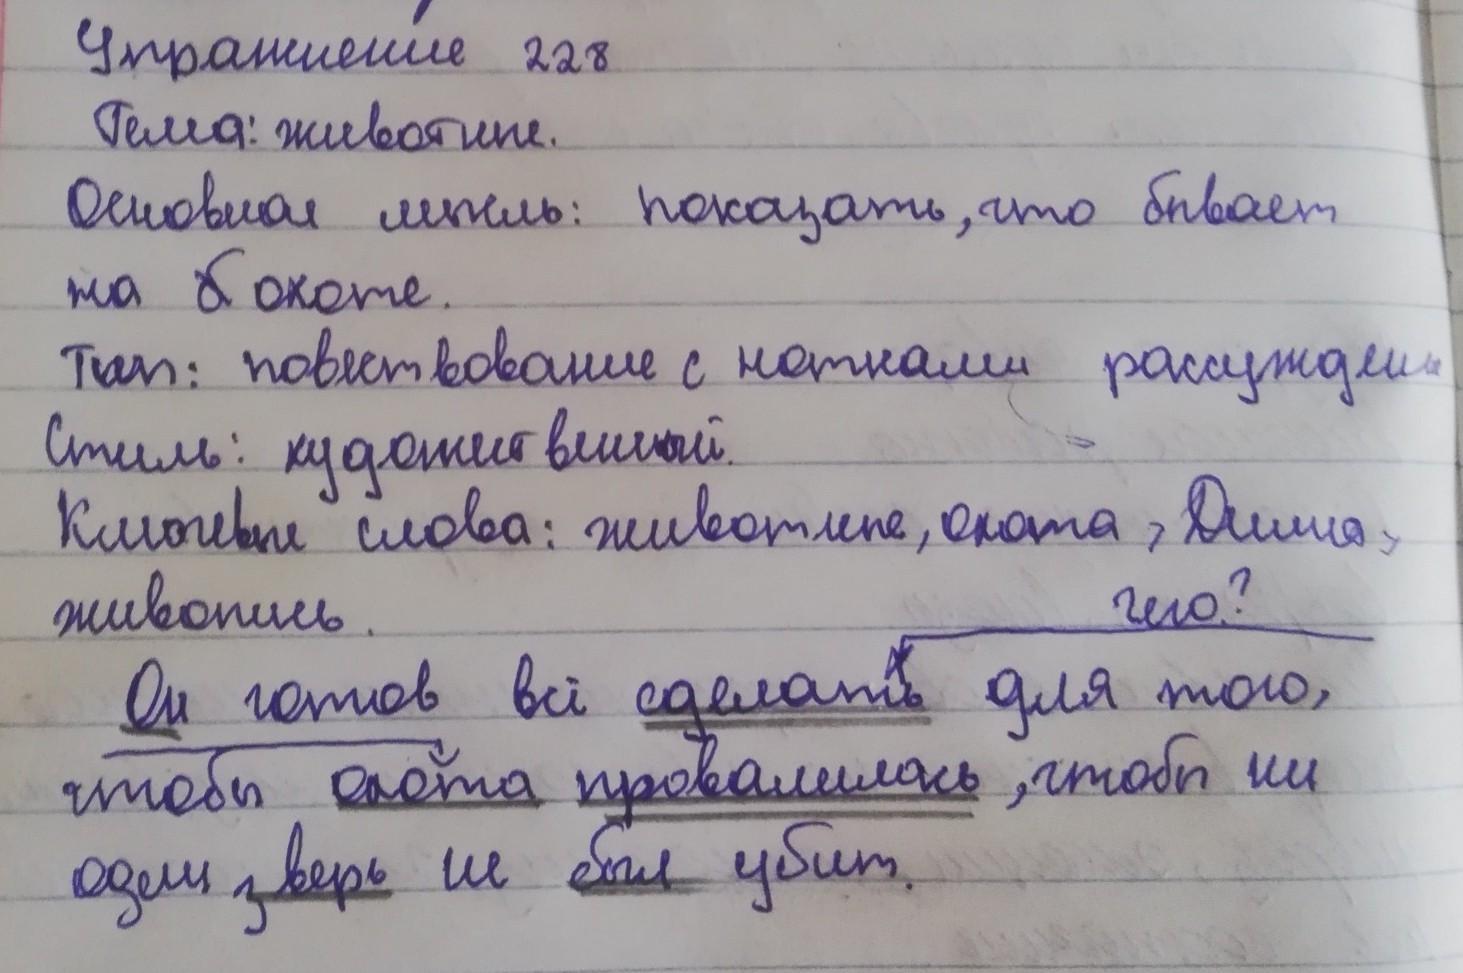 Упражнение 228
Тема: животные.
Основная мысль: показать, что бывает
на охоте.
Тип: повествование с нотками рассуждени
Стиль: художественный.
Ключевые слова: животные, охота, Дина,
живопись.
чего?
Он готов всё сделать для того,
чтобы охота провалилась, чтобы ни
один зверь не был убит.